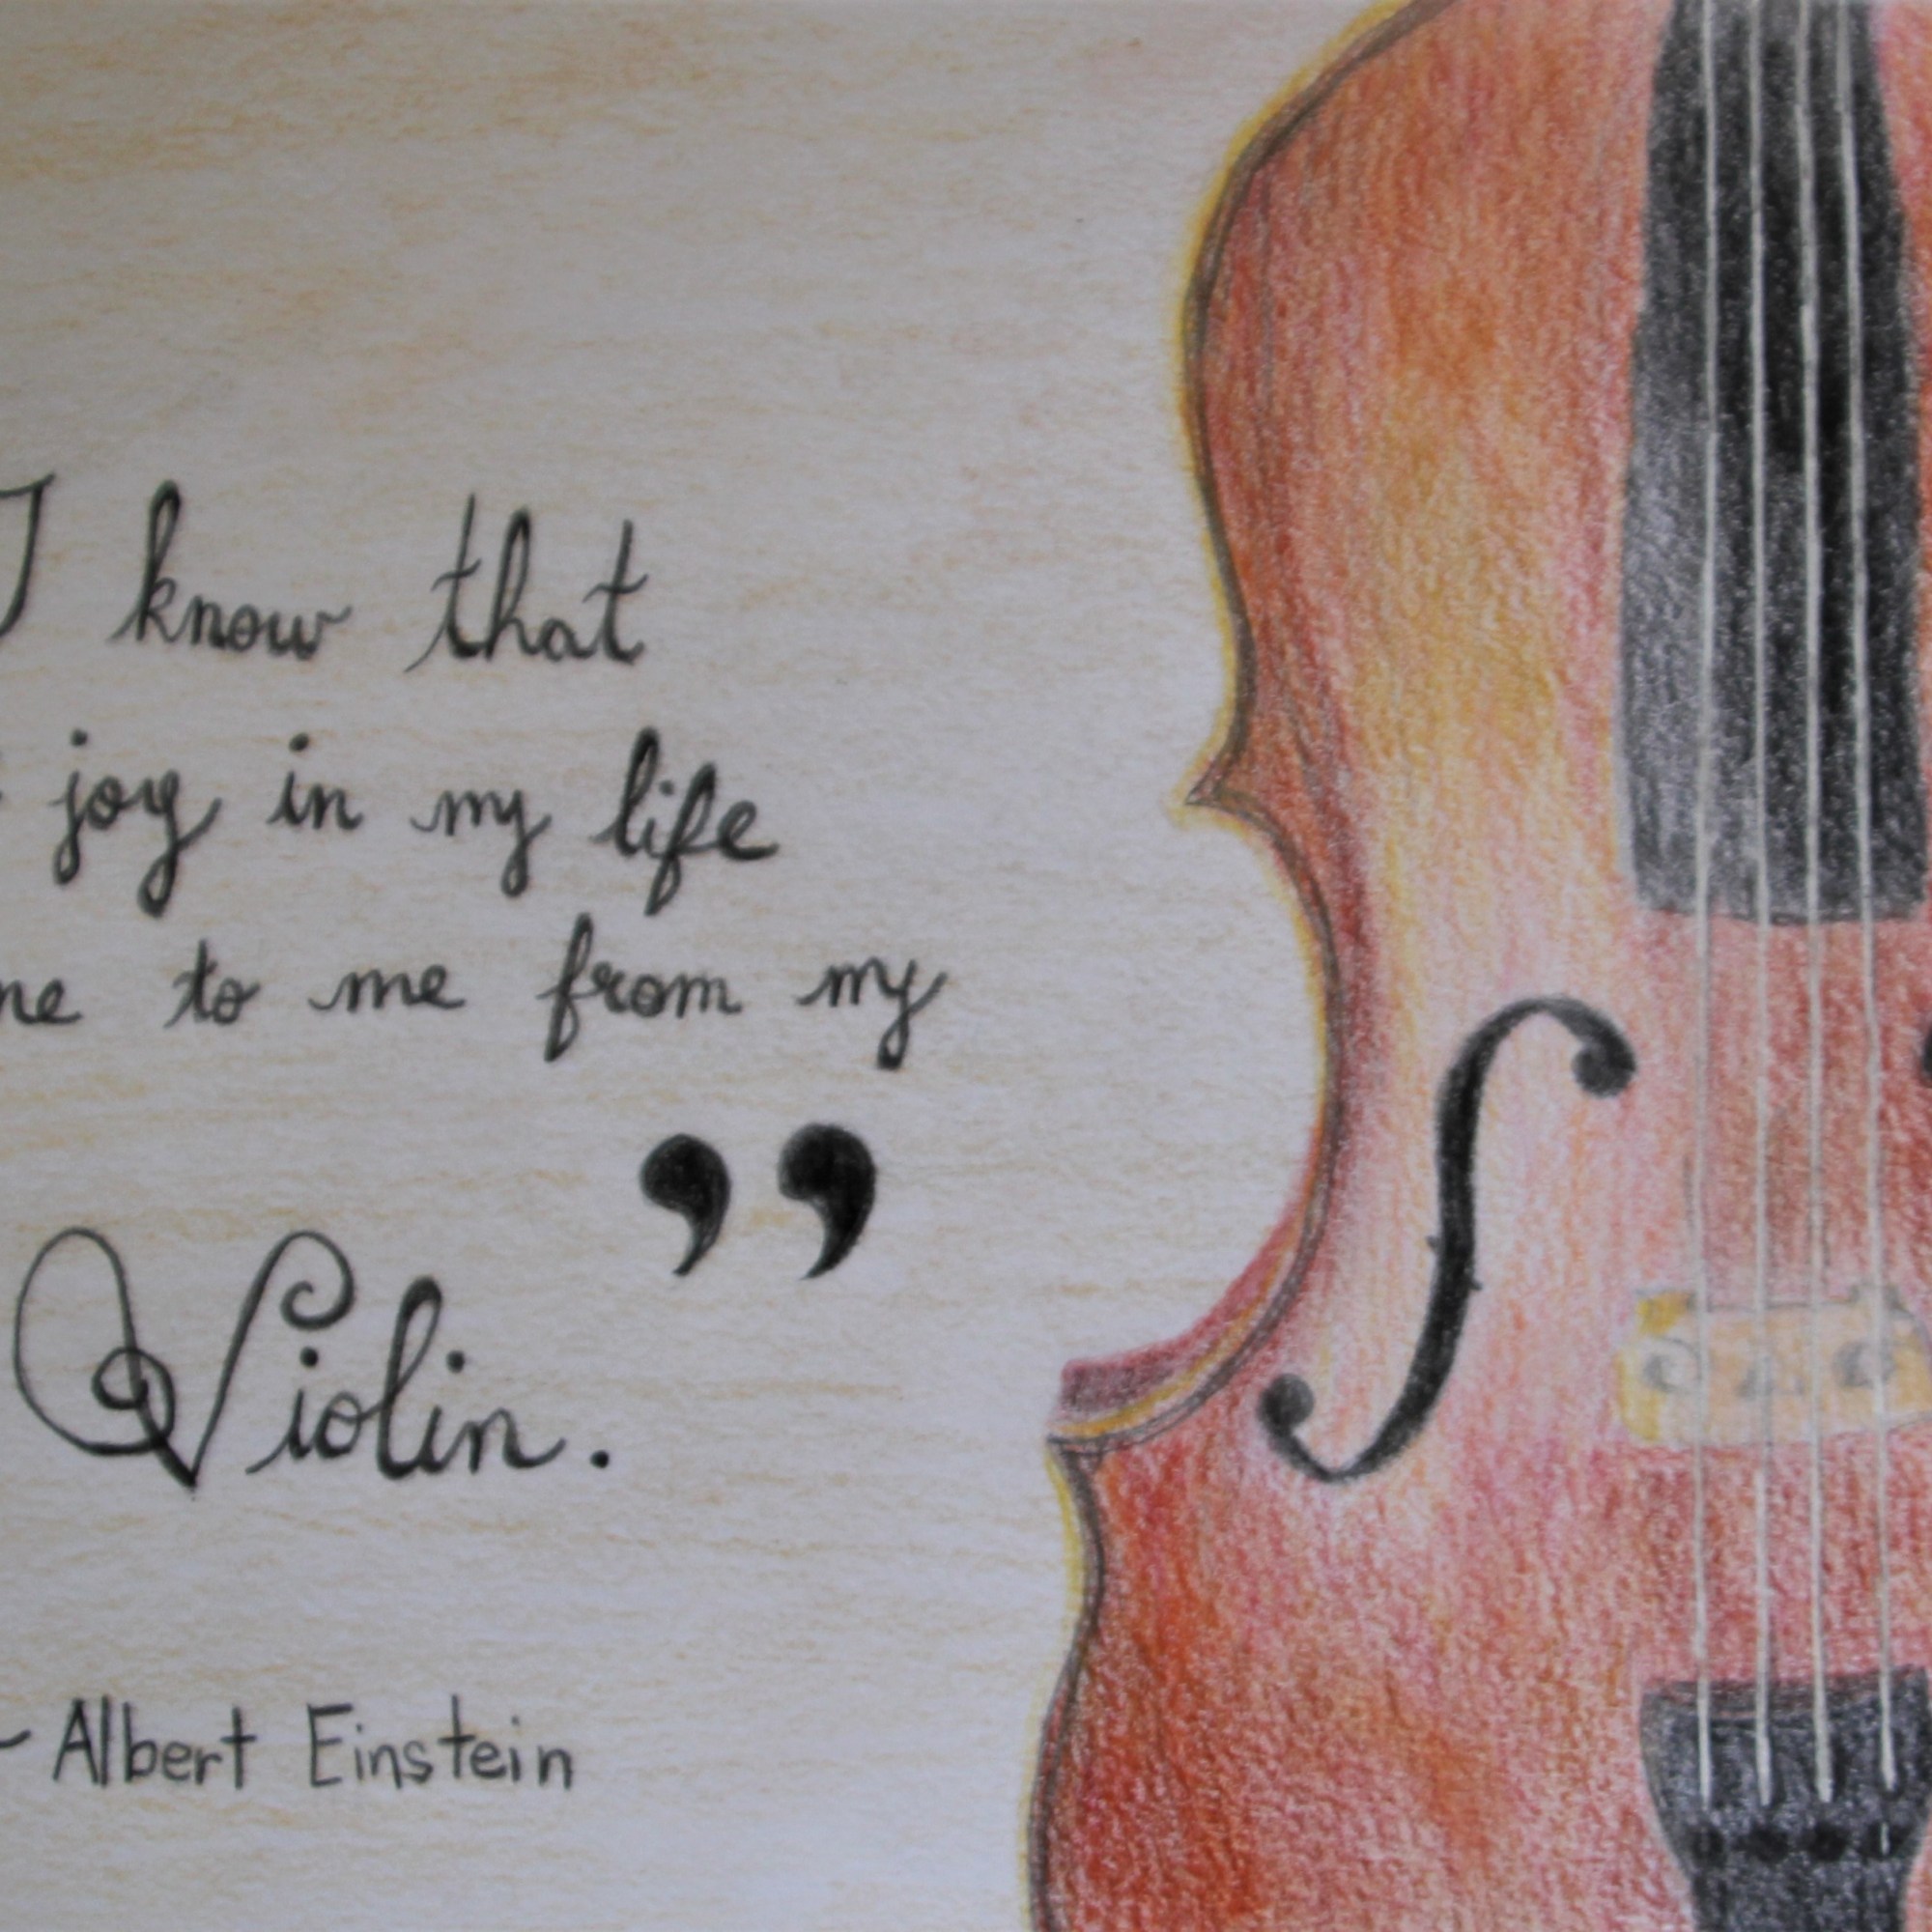 I know that
joy in my life
to me from my
Violin. ”
- Albert Einstein